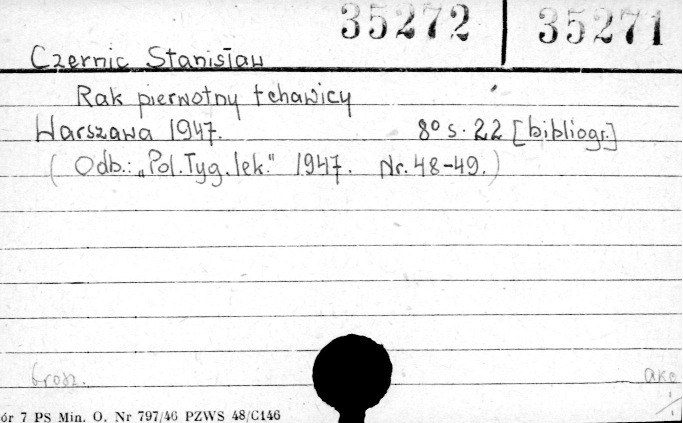 35272 | 35271
Czernic Stanisław
Rak pierwotny tchawicy
Warszawa 1947. 8° s. 22 [bibliogr.]
(Odb.: „Pol. Tyg. lek." 1947. Nr. 48-49.)
brosz.
akc
ór 7 PS Min. O. Nr 797/46 PZWS 48/C146